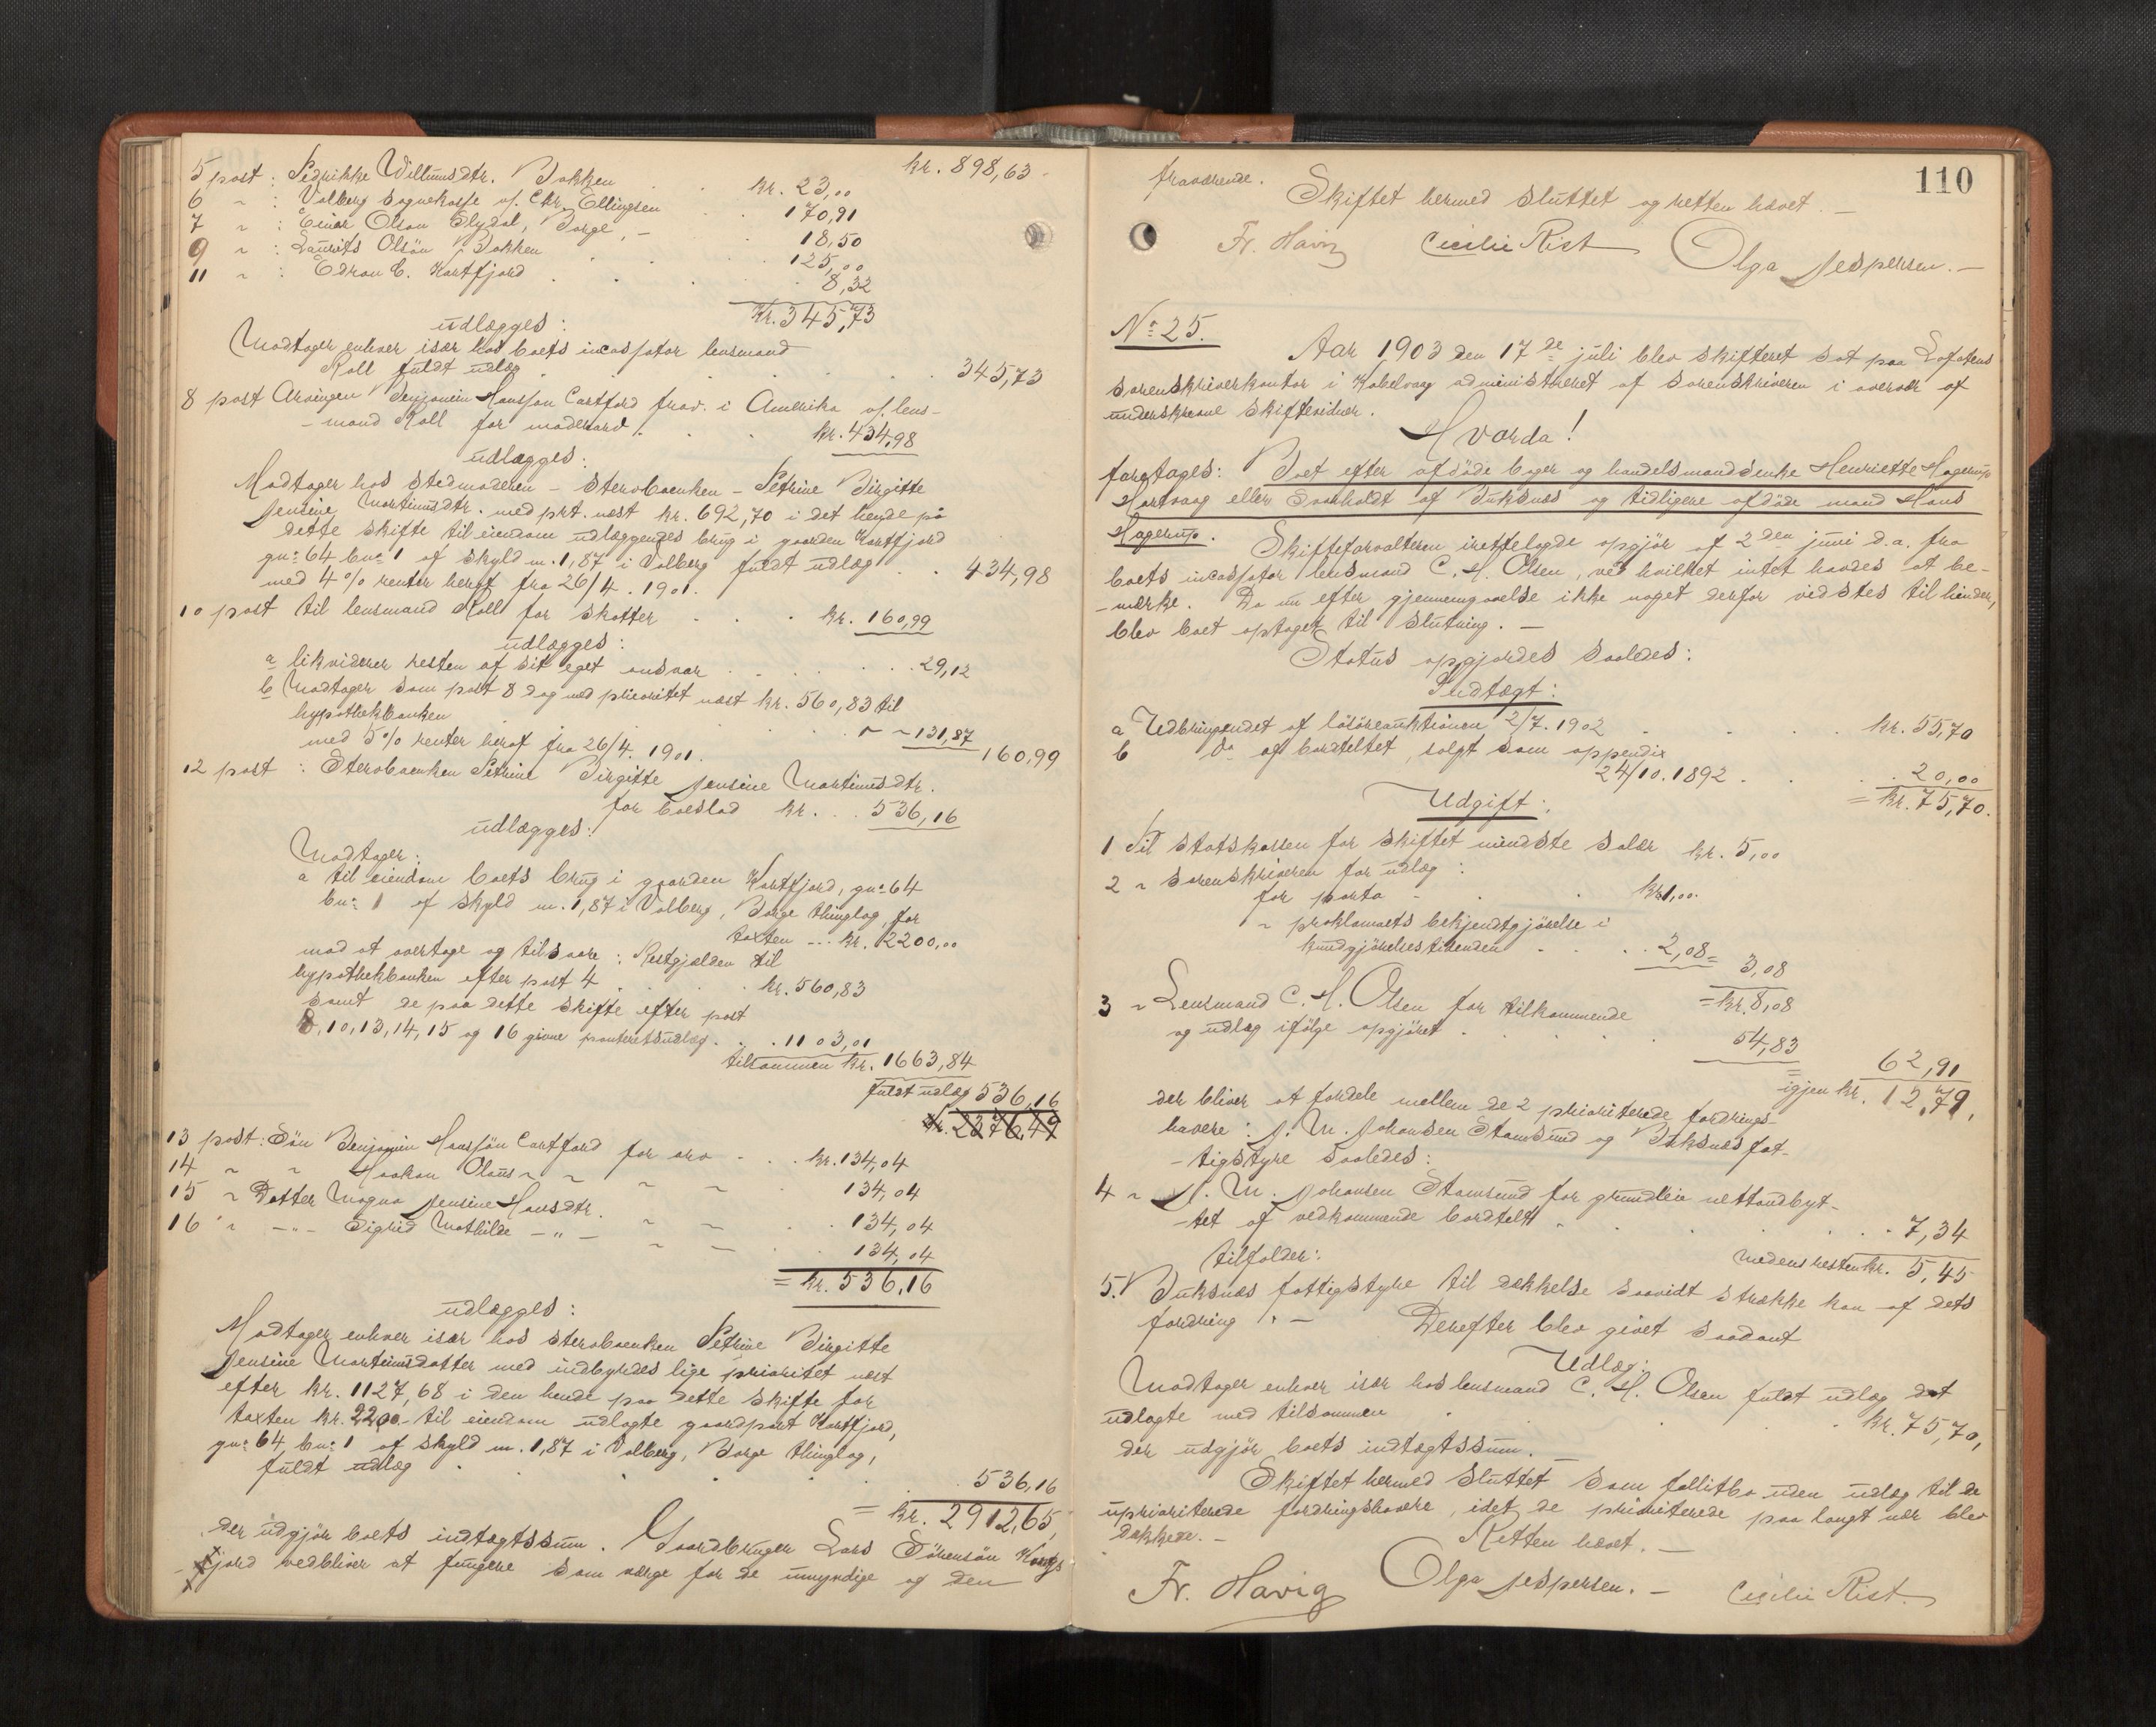 kr. 898,63
5 post: Pedrikke Willumsdtr. Bakken . . kr. 23,00
6 " : Valberg sognekasse v. Chr. Ellingsen . . 170,91
7 " : Einar Olsen Slydal, Borge, — . 18,50
9 " : Laurits Olsön, Bakken . . 125,00
11 " : Edron C. Kartfjord . . . . 8,32
kr. 345,73
udlægges:
Modtager enhver især hos boets incassator lensmand
Roll fuldt udlæg . . . . . . 345,73
8 post Arvingen Benjamin Hansson Cartford frav. i Amerika v. lens-
-mand Roll for mødrearv . . . kr. 434,98
udlægges:
Modtager hos stedmoderen - sterboenken - Petrine Birgitte
Jensine Martinusdtr. med prt. næst kr. 692,70 i det hende på
dette skifte til eiendom udlæggendes brug i gaarden Kartfjord
gn: 64 bn: 1 af skyld m. 1,87 i Valberg fuldt udlæg . . 434,98
med 4% renter heraf fra 26/4. 1901.
10 post til lensmand Roll for skatter . . . kr. 160,99
udlægges:
a likviderer resten af sit eget ansvar . . . . 29,12
b Modtager som post 8 dog med prioritet næst kr. 560,83 til
hypothekbanken . . . " " 131,87
med 5% renter heraf fra 26/4. 1901. 160,99
12 post : Sterboenken Petrine Birgitte Jensine Martinusdtr.
for boeslod kr. . . 536,16
udlægges:
Modtager:
a til eiendom boets brug i gaarden Kartfjord, gn: 64
bn: 1 af skyld m. 1,87 i Valberg, Borge thinglag, for
taxten ... kr. 2200,00
mod at overtage og tilsvare: Restgjælden til
hypothekbanken efter post 4 . . . kr. 560,83
samt de paa dette skifte efter post
8, 10, 13, 14, 15 og 16 givne panteretsudlæg . . . 1103,01
tilsammen kr. 1663,84
fuldt udlæg 536,16
kr. 2376,49
13 post: Sön Benjamin Hanssön Cartford for arv . . . kr. 134,04
14 " " Haakon Olaus " " " " 134,04
15 " Datter Magna Jensine Hansdtr. " " . . 134,04
16 " -"- Sigrid Mathilde -"- " " . . 134,04
= kr. 536,16
udlægges:
Modtager enhver især hos sterboenken Petrine Birgitte
Jensine Martinusdatter med indbyrdes lige prioritet næst
efter kr. 1127,68 i den hende paa dette skifte for
taxten kr. 2200.- til eiendom udlagte gaardpart Kartfjord,
gn: 64, bn: 1 af skyld m. 1,87 i Valberg, Borge thinglag,
fuldt udlæg . . . . . . 536,16
= kr. 2912,65,
der udgjör boets indtægtssum. Gaardbruger Lars Sörensön Kartf-
-fjord vedbliver at fungere som værge for de umyndige og den
110
fraværende.
Skiftet hermed sluttet og retten hævet. —
Fr. Havig Cecilie Rist Olga Jespersen. —
No: 25.
Aar 1903 den 17de juli blev skifteret sat paa Lofotens
sorenskriverkontor i Kabelvaag administreret af sorenskriveren i overvær af
underskrevne skiftevidner.
Hvorda!
foretages: Boet efter afdöde bager og handelsmandsenke Henriette Hagerup
Hartvaag eller Svarholdt af Buksnæs og tidligere afdöde mand Hans
Hagerup. Skifteforvalteren irettelagde opgjör af 2den juni d.a. fra
boets incassator lensmand C. H. Olsen, ved hvilket intet havdes at be-
-mærke. Da nu efter gjennemgaaelse ikke noget derfor vidstes til hinder,
blev boet optaget til slutning. —
Status opgjordes saaledes:
Indtægt:
a Udbringendet af lösöreauktionen 2/7. 1902 . . . . kr. 55,70
b do af bordteltet, solgt som appendix
24/10. 1892 . . . 20,00
= kr. 75,70.
Udgift:
1 Til statskassen for skiftet mindste salær kr. 5,00
2 " sorenskriveren for udlæg :
for porto . . . kr 1,00.
" proklamaets bekjendtgjörelse i
kundgjörelsestidenden . . . 2,08 = 3,08
= kr. 8,08
3 " Lensmand C. H. Olsen for tilkommende
og udlæg ifölge opgjöret . . . . . 54,83
= 62,91
igjen kr. 12,79,
der bliver at fordele mellem de 2 prioriterede fordrings-
havere: J. M. Johansen Stamsund og Buksnæs fat-
-tigstyre saaledes:
4 " J. M. Johansen Stamsund for grundleie nettoudbyt-
-tet af vedkommende bordtelt . . . . . 7,34
medens resten kr. 5,45
tilfalder:
5. Buksnæs fattigstyre til dækkelse saavidt strække kan af dets
fordring. — Derefter blev givet saadant
Udlæg:
Modtager enhver især hos lensmand C. H. Olsen fuldt udlæg det
udlagte med tilsammen . . . . . kr. 75,70,
der udgjör boets indtægtssum.
Skiftet hermed sluttet som fallitbo uden udlæg til de
uprioriterede fordringshavere, idet de prioriterede paa langt nær blev
dækkede. — Retten hævet. —
Fr. Havig Olga Jespersen. — Cecilie Rist.